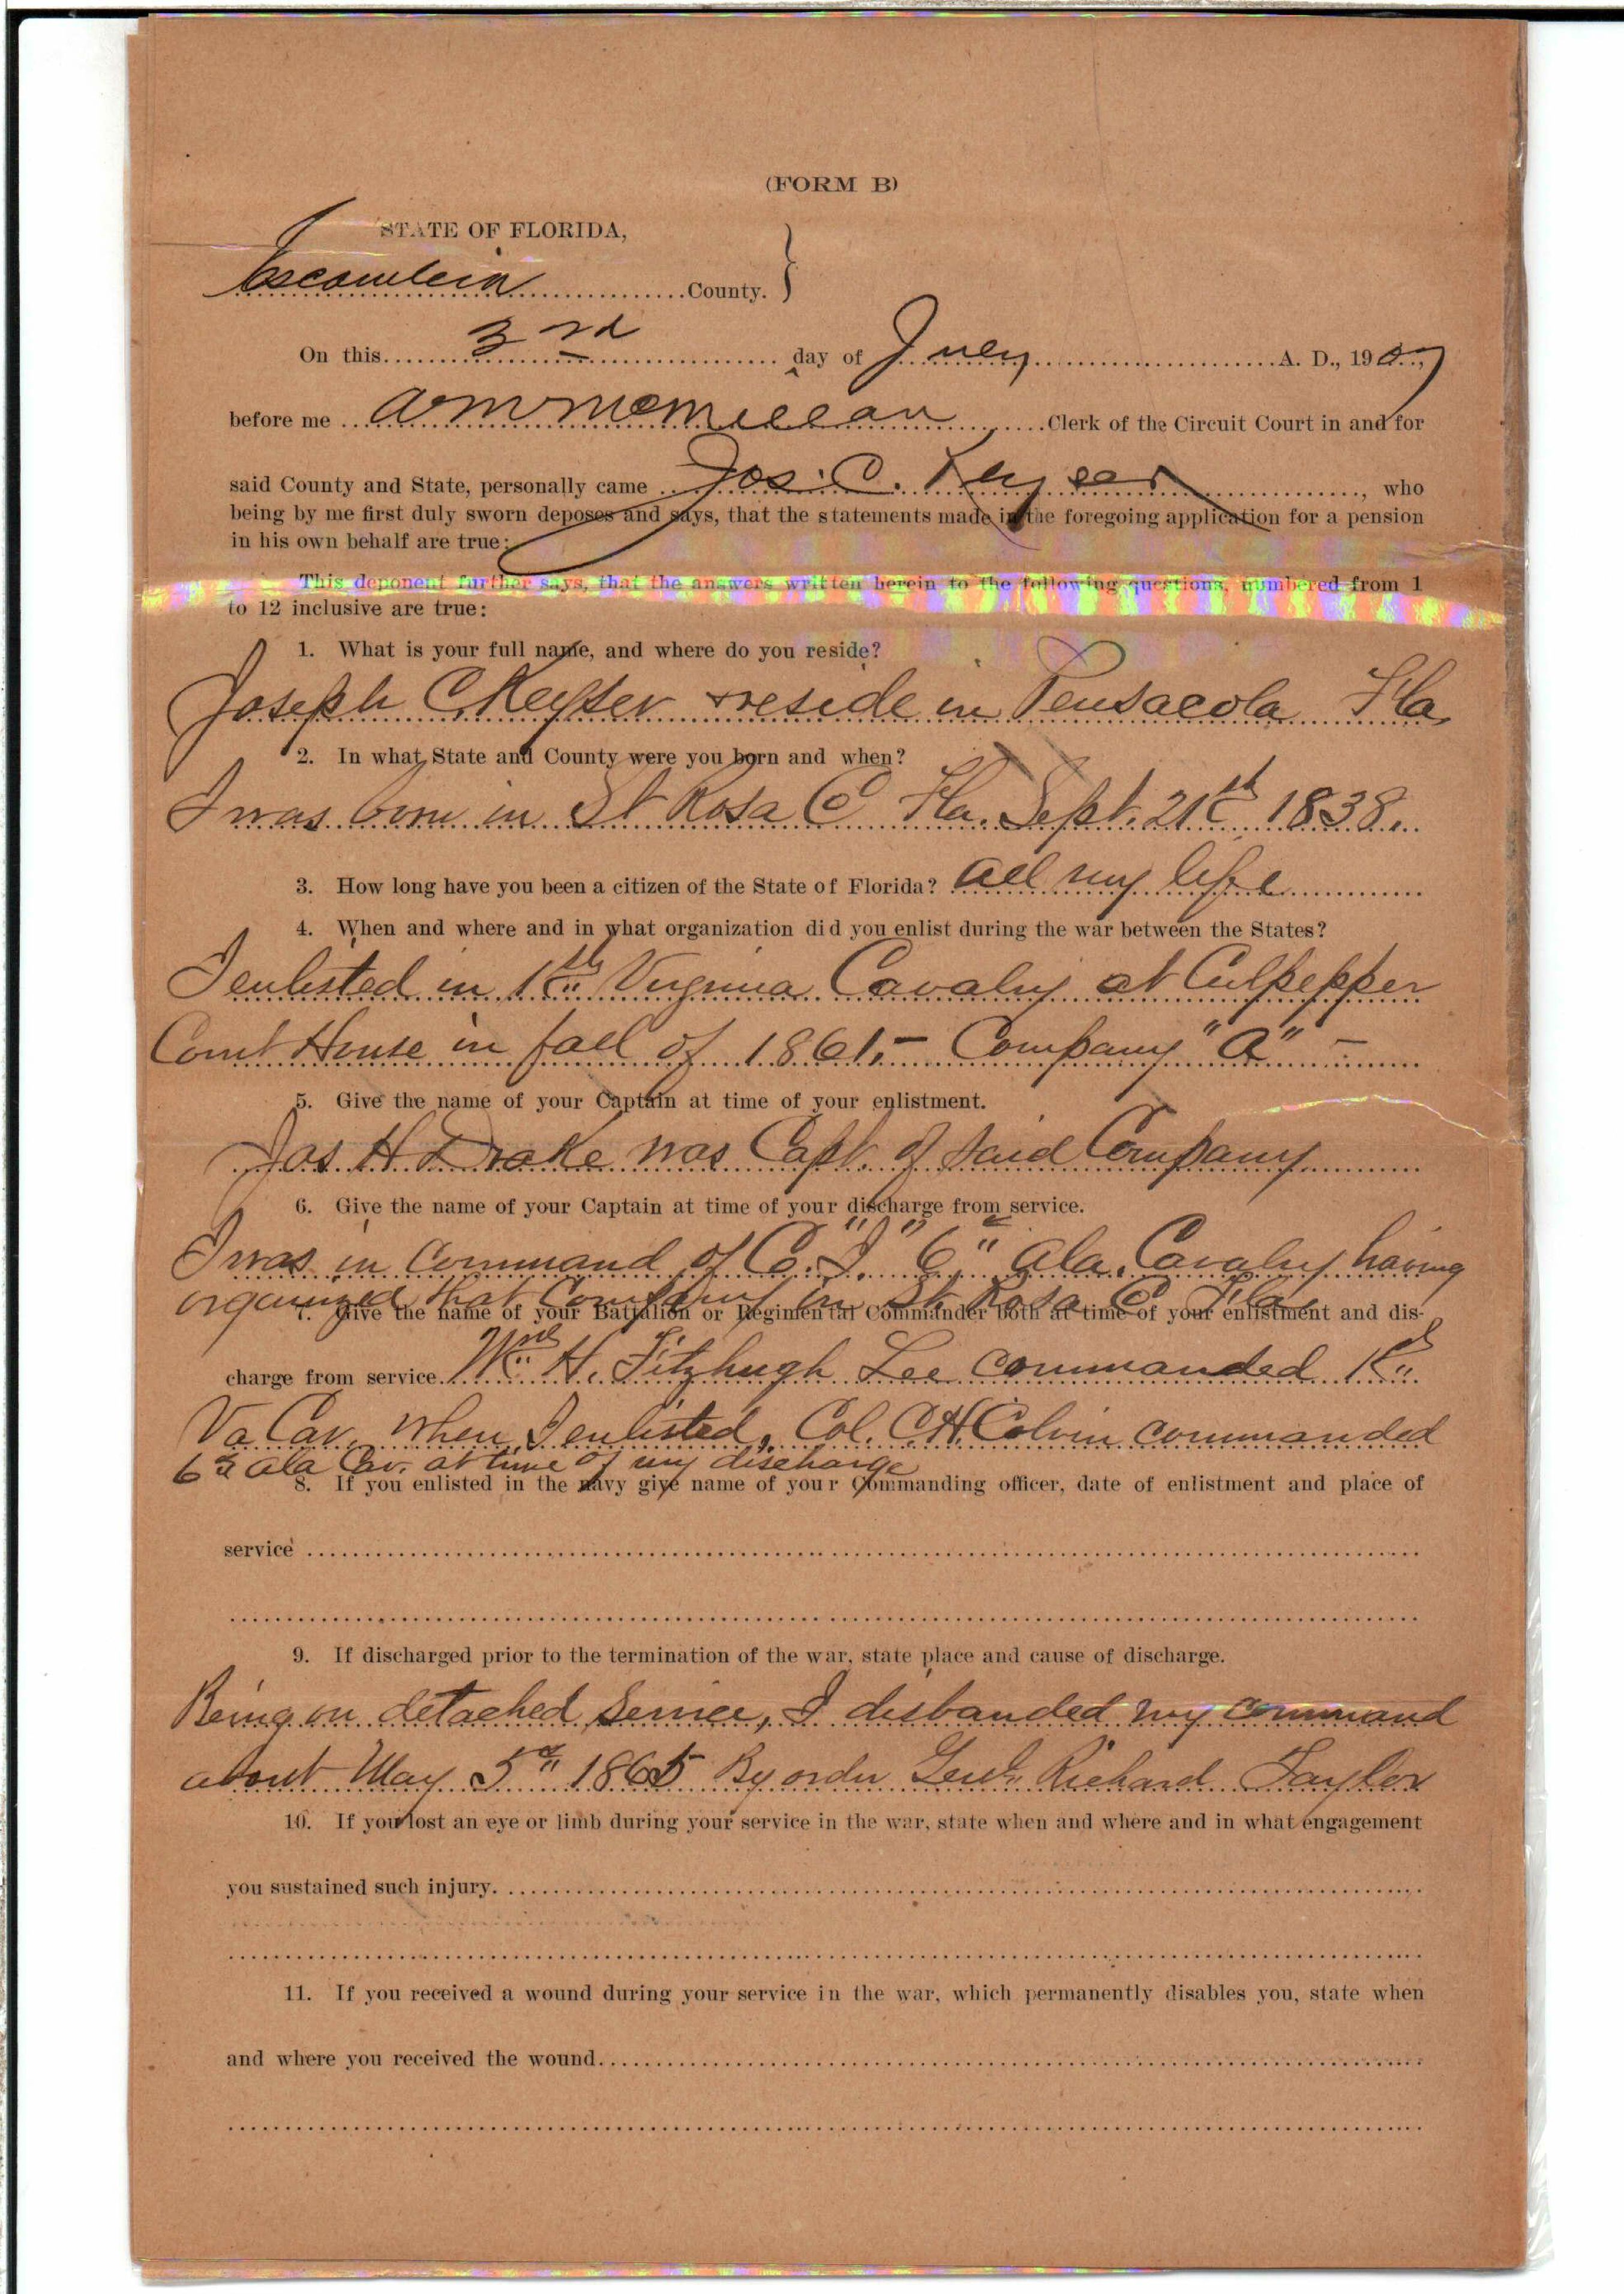 (FORM B)
STATE OF FLORIDA,
Escambia County.
On this 3rd day of July A. D., 1907
before me A M McMillan Clerk of the Circuit Court in and for
said County and State, personally came Jos. C. Keyser, who
being by me first duly sworn deposes and says, that the statements made in the foregoing application for a pension
in his own behalf are true:
This deponent further says, that the answers written herein to the following questions, numbered from 1
to 12 inclusive are true:
1. What is your full name, and where do you reside?
Joseph C. Keyser reside in Pensacola Fla.
2. In what State and County were you born and when?
I was born in St Rosa Co Fla. Sept. 21st 1838.
3. How long have you been a citizen of the State of Florida? All my life
4. When and where and in what organization did you enlist during the war between the States?
I enlisted in 1st Virginia Cavalry at Culpepper
Court House in fall of 1861.- Company "A" -
5. Give the name of your Captain at time of your enlistment.
Jas H Drake was Capt. of said Company
6. Give the name of your Captain at time of your discharge from service.
I was in command of Co. "I" 6" Ala. Cavalry having
organized that Company in St Rosa Co Fla
7. Give the name of your Battalion or Regimental Commander both at time of your enlistment and dis-
charge from service. Wm H. Fitzhugh Lee commanded 1st
Va Cav. when I enlisted. Col. C H Colvin commanded
6th Ala Cav. at time of my discharge
8. If you enlisted in the navy give name of your Commanding officer, date of enlistment and place of
service
9. If discharged prior to the termination of the war, state place and cause of discharge.
Being on detached service, I disbanded my command
about May 5th 1865 By order Genl. Richard Taylor
10. If you lost an eye or limb during your service in the war, state when and where and in what engagement
you sustained such injury.
11. If you received a wound during your service in the war, which permanently disables you, state when
and where you received the wound.